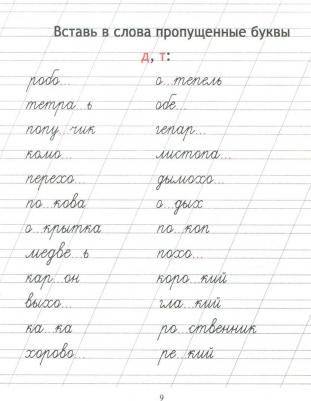 Вставь в слова пропущенные буквы
д, т:
робо... о...тепель
тетра...ь обе...
попу...чик гепар...
комо... листопа...
перехо... дымохо...
по...кова о...дых
о...крытка по...коп
медве...ь похо...
кар...он коро...кий
выхо... гла...кий
ка...ка ро...ственник
хорово... ре...кий
9